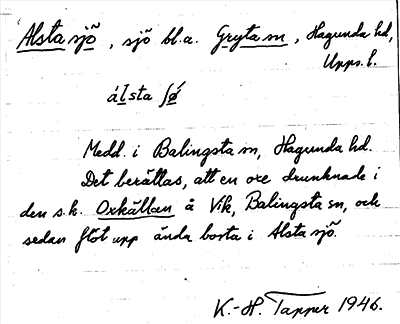 Alstasjö, sjö bl.a. Gryta sn, Hagunda hd,
Upps. l.
álsta ʃǿ
Medd. i Balingsta sn, Hagunda hd.
Det berättas, att en oxe drunknade i
den s.k. Oxkällan å Vik, Balingsta sn, och
sedan flöt upp ända borta i Alstasjö.
K.-H. Tapper 1946.